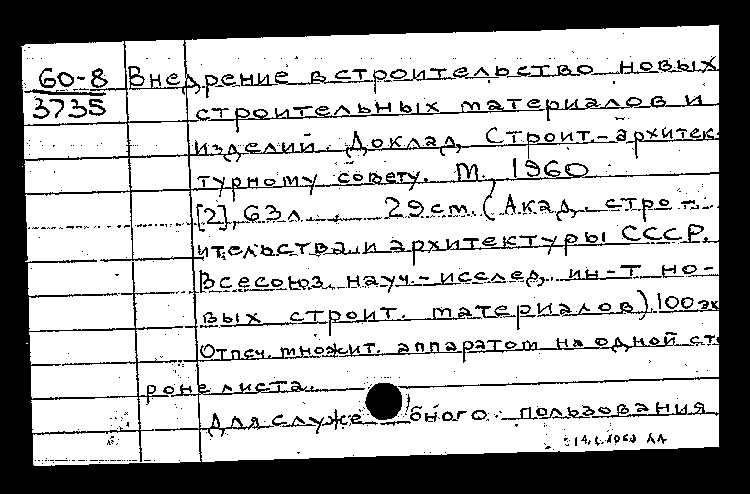 60-8 Внедрение в строительство новых
3735 строительных материалов и
изделий. Доклад Строит.-архитек-
турному совету. М., 1960
[2], 63 л. 29 см. (Акад. стро-
ительства и архитектуры СССР.
Всесоюз. науч.-исслед. ин-т но-
вых строит. материалов). 100 эк
Отпеч. множит. аппаратом на одной сто
роне листа.
Для служебного пользования